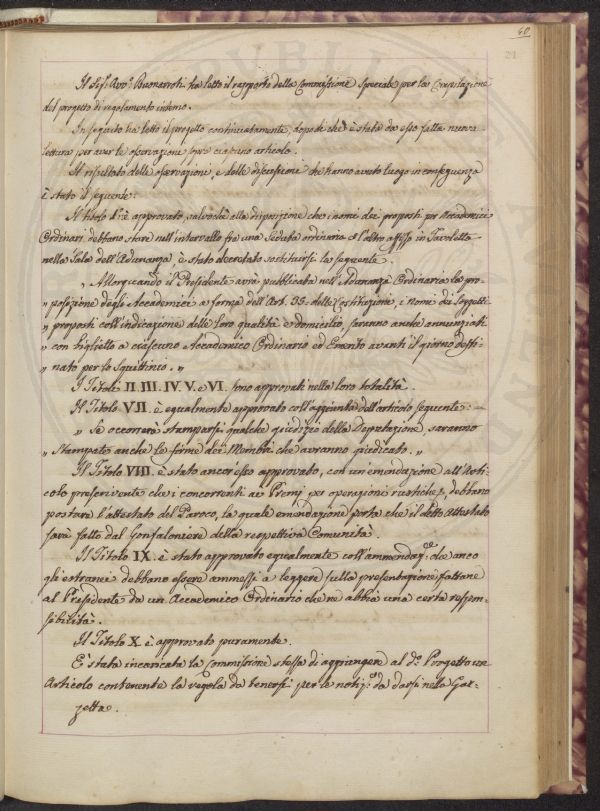 40
21
Il Sig.r Avv.o Buonarroti ha letto il rapporto della Commissione speciale per la Compilazione
del progetto di regolamento interno.
In seguito ha letto il progetto continuatamente, dopo di che è stata da esso fatta nuova
lettura per aver le osservazione sopra ciascuno articolo.
Il risultato delle osservazioni, e delle discussioni che hanno avuto luogo in conseguenza
è stato il seguente:
Il titolo I. è approvato, salvo che alla disposizione che i nomi dei proposti per Accademici
Ordinari debbano stare nell'intervallo fra una Seduta ordinaria e l'altra affissi in Tavoletta
nella Sala dell'Adunanza, è stato decretato sostituirsi la seguente.
„ Allorquando il Presidente avrà pubblicata nell'Adunanza Ordinaria la pro-
„ posizione degli Accademici a forma dell'Art. 55. della Costituzione, i nomi dei soggetti
„ proposti coll'indicazione delle loro qualità e domicilio, saranno anche annunziati
„ con biglietto a ciascuno Accademico Ordinario ed Emerito avanti il giorno desti-
„ nato per lo Squittinio. „
I Titoli II. III. IV. V. e VI. sono approvati nella loro totalità.
Il Titolo VII. è egualmente approvato coll'aggiunta dell'articolo seguente:
„ Se occorrerà stamparsi qualche giudizio della deputazione, saranno
„ stampate anche le firme dei Membri che avranno giudicato. „
Il Titolo VIII. è stato ancor esso approvato, con un'emendazione all'Arti-
colo prescrivente che i concorrenti ai Premj per operazioni rustiche, debbano
portare l'attestato del Paroco, la quale emendazione porta che il detto Attestato
sarà fatto dal Gonfaloniere della respettiva Comunità.
Il Titolo IX. è stato approvato egualmente coll'ammendaz.ne che anco
gli estranei debbano essere ammessi a leggere sulla presentazione fattane
al Presidente da un Accademico Ordinario che ne abbia una certa respon-
sibilità.
Il Titolo X è approvato puramente.
E' stata incaricata la Commissione stessa di aggiungere al d.o Progetto un
Articolo contenente la regola da tenersi per le notiz.e da darsi nella Gaz-
zetta.